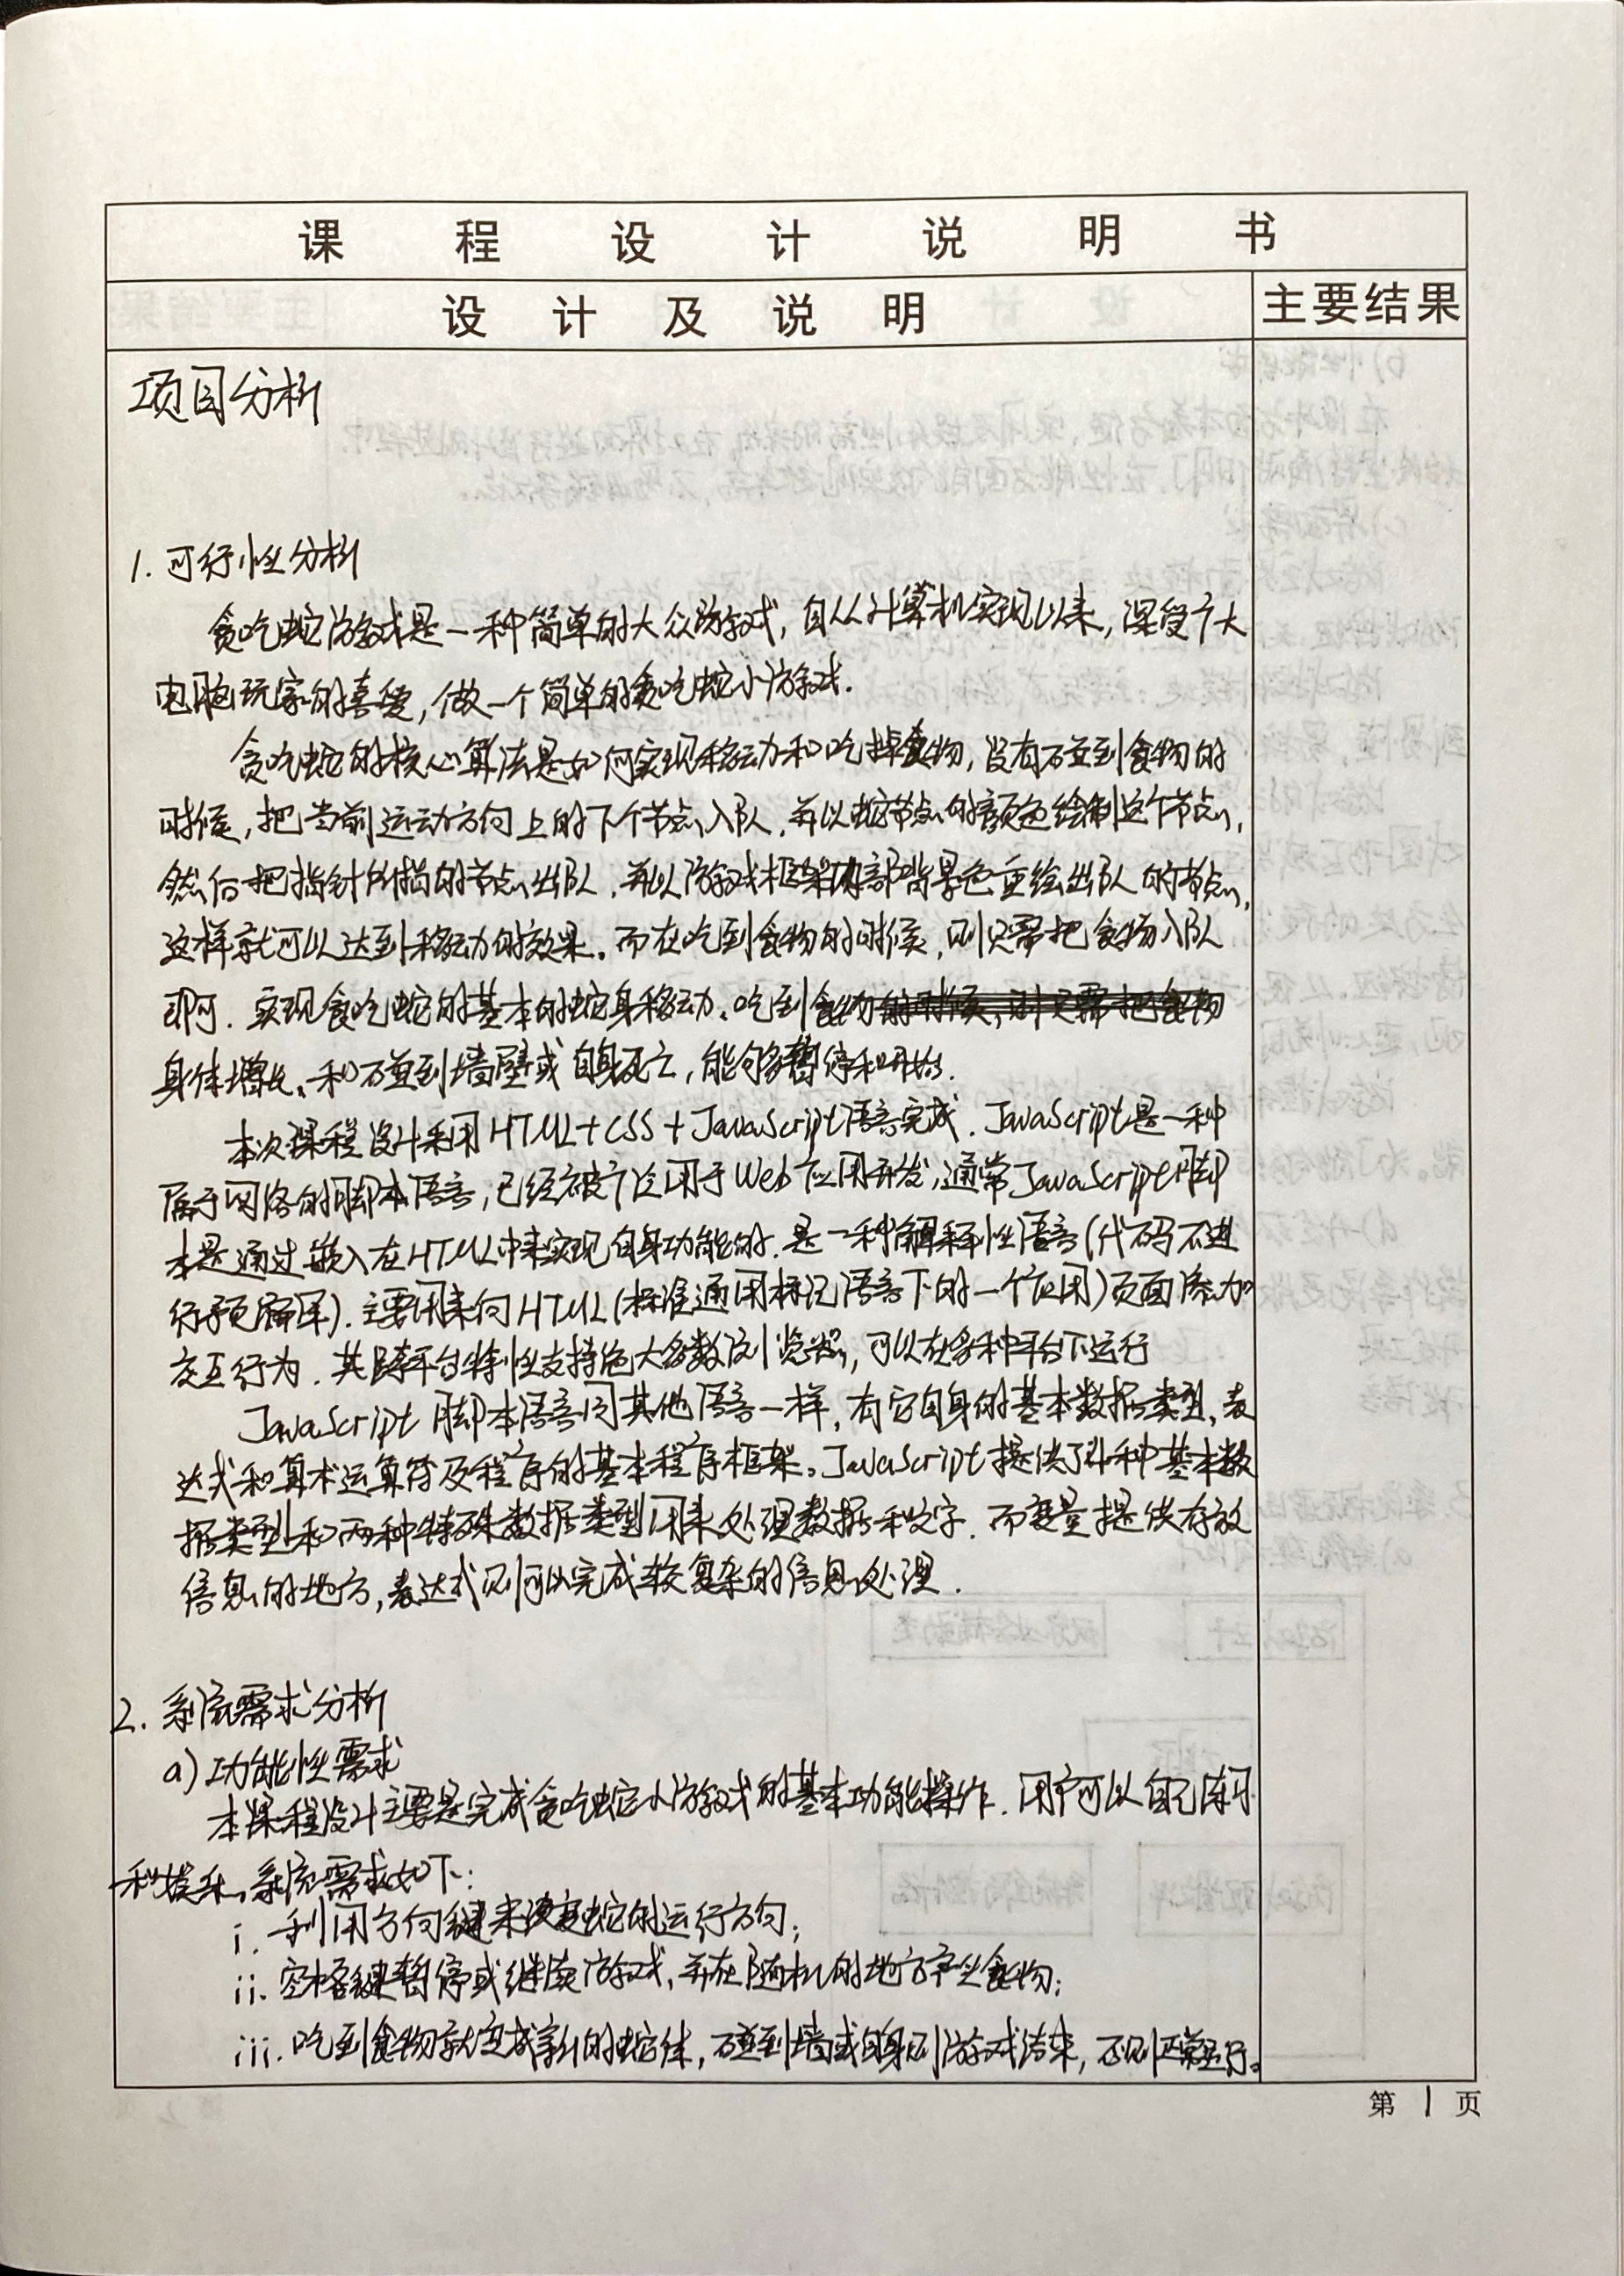 课程设计说明书
设计及说明 主要结果
项目分析
1. 可行性分析
贪吃蛇游戏是一种简单的大众游戏，自从计算机实现以来，深受广大
电脑玩家的喜爱，做一个简单的贪吃蛇小游戏.
贪吃蛇的核心算法是如何实现移动和吃掉食物，没有碰到食物的
时候，把当前运动方向上的下个节点入队，并以蛇节点的颜色绘制这个节点，
然后把指针所指的节点出队，并以游戏框架内部背景色重绘出队的节点，
这样就可以达到移动的效果。而在吃到食物的时候，则只需把食物入队
即可. 实现贪吃蛇的基本的蛇身移动、吃到食物
身体增长、和碰到墙壁或自身死亡，能够暂停和开始.
本次课程设计采用HTML+CSS+JavaScript语言完成. JavaScript是一种
属于网络的脚本语言，已经被广泛用于Web应用开发，通常JavaScript脚
本是通过嵌入在HTML中来实现自身功能的. 是一种解释性语言(代码不进
行预编译). 主要用来向HTML(标准通用标记语言下的一个应用)页面添加
交互行为. 其跨平台特性支持绝大多数浏览器，可以在多种平台下运行
JavaScript脚本语言同其他语言一样，有它自身的基本数据类型，表
达式和算术运算符及程序的基本程序框架。JavaScript提供了四种基本数
据类型和两种特殊数据类型用来处理数据和文字. 而变量提供存放
信息的地方，表达式则可以完成较复杂的信息处理.
2. 系统需求分析
a) 功能性需求
本课程设计主要是完成贪吃蛇小游戏的基本功能操作. 用户可以自己练习
和娱乐，系统需求如下：
i. 利用方向键来改变蛇的运行方向；
ii. 空格键暂停或继续游戏，并在随机的地方产生食物；
iii. 吃到食物就变成新的蛇体，碰到墙或自身则游戏结束，否则正常运行。
第1页